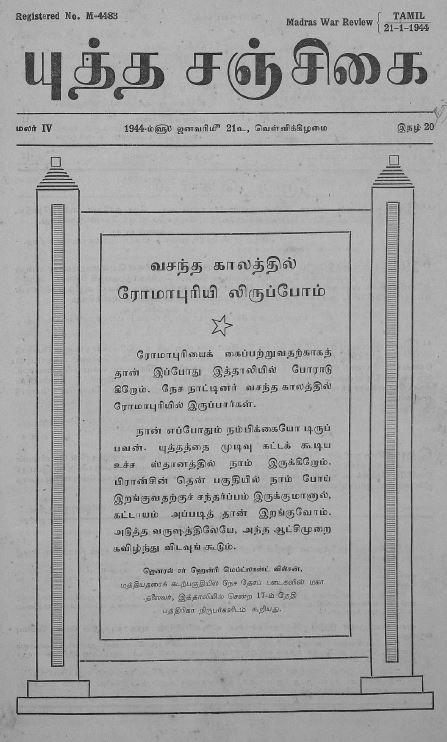 Registered No. M-4483
Madras War Review { TAMIL
21-1-1944
யுத்த சஞ்சிகை
மலர் IV 1944-ம்௵ ஜனவரி௴ 21௳, வெள்ளிக்கிழமை இதழ் 20
வசந்த காலத்தில்
ரோமாபுரியி லிருப்போம்
ரோமாபுரியைக் கைப்பற்றுவதற்காகத்
தான் இப்போது இத்தாலியில் போராடு
கிறோம். நேச நாட்டினர் வசந்த காலத்தில்
ரோமாபுரியில் இருப்பார்கள்.
நான் எப்போதும் நம்பிக்கையோ டிருப்
பவன். யுத்தத்தை முடிவு கட்டக் கூடிய
உச்ச ஸ்தானத்தில் நாம் இருக்கிறோம்.
பிரான்சின் தென் பகுதியில் நாம் போய்
இறங்குவதற்குச் சந்தர்ப்பம் இருக்குமானால்,
கட்டாயம் அப்படித் தான் இறங்குவோம்.
அடுத்த வருஷத்திலேயே, அந்த ஆட்சிமுறை
கவிழ்ந்து விடவுங் கூடும்.
ஜெனரல் சர் ஹென்ரி மெயிட்லண்ட் வில்சன்,
மத்தியதரைக் கடற்பகுதியில் நேச தேசப் படைகளின் மகா
தலைவர், இத்தாலியில் சென்ற 17-ம் தேதி
பத்திரிகா நிருபர்களிடம் கூறியது.